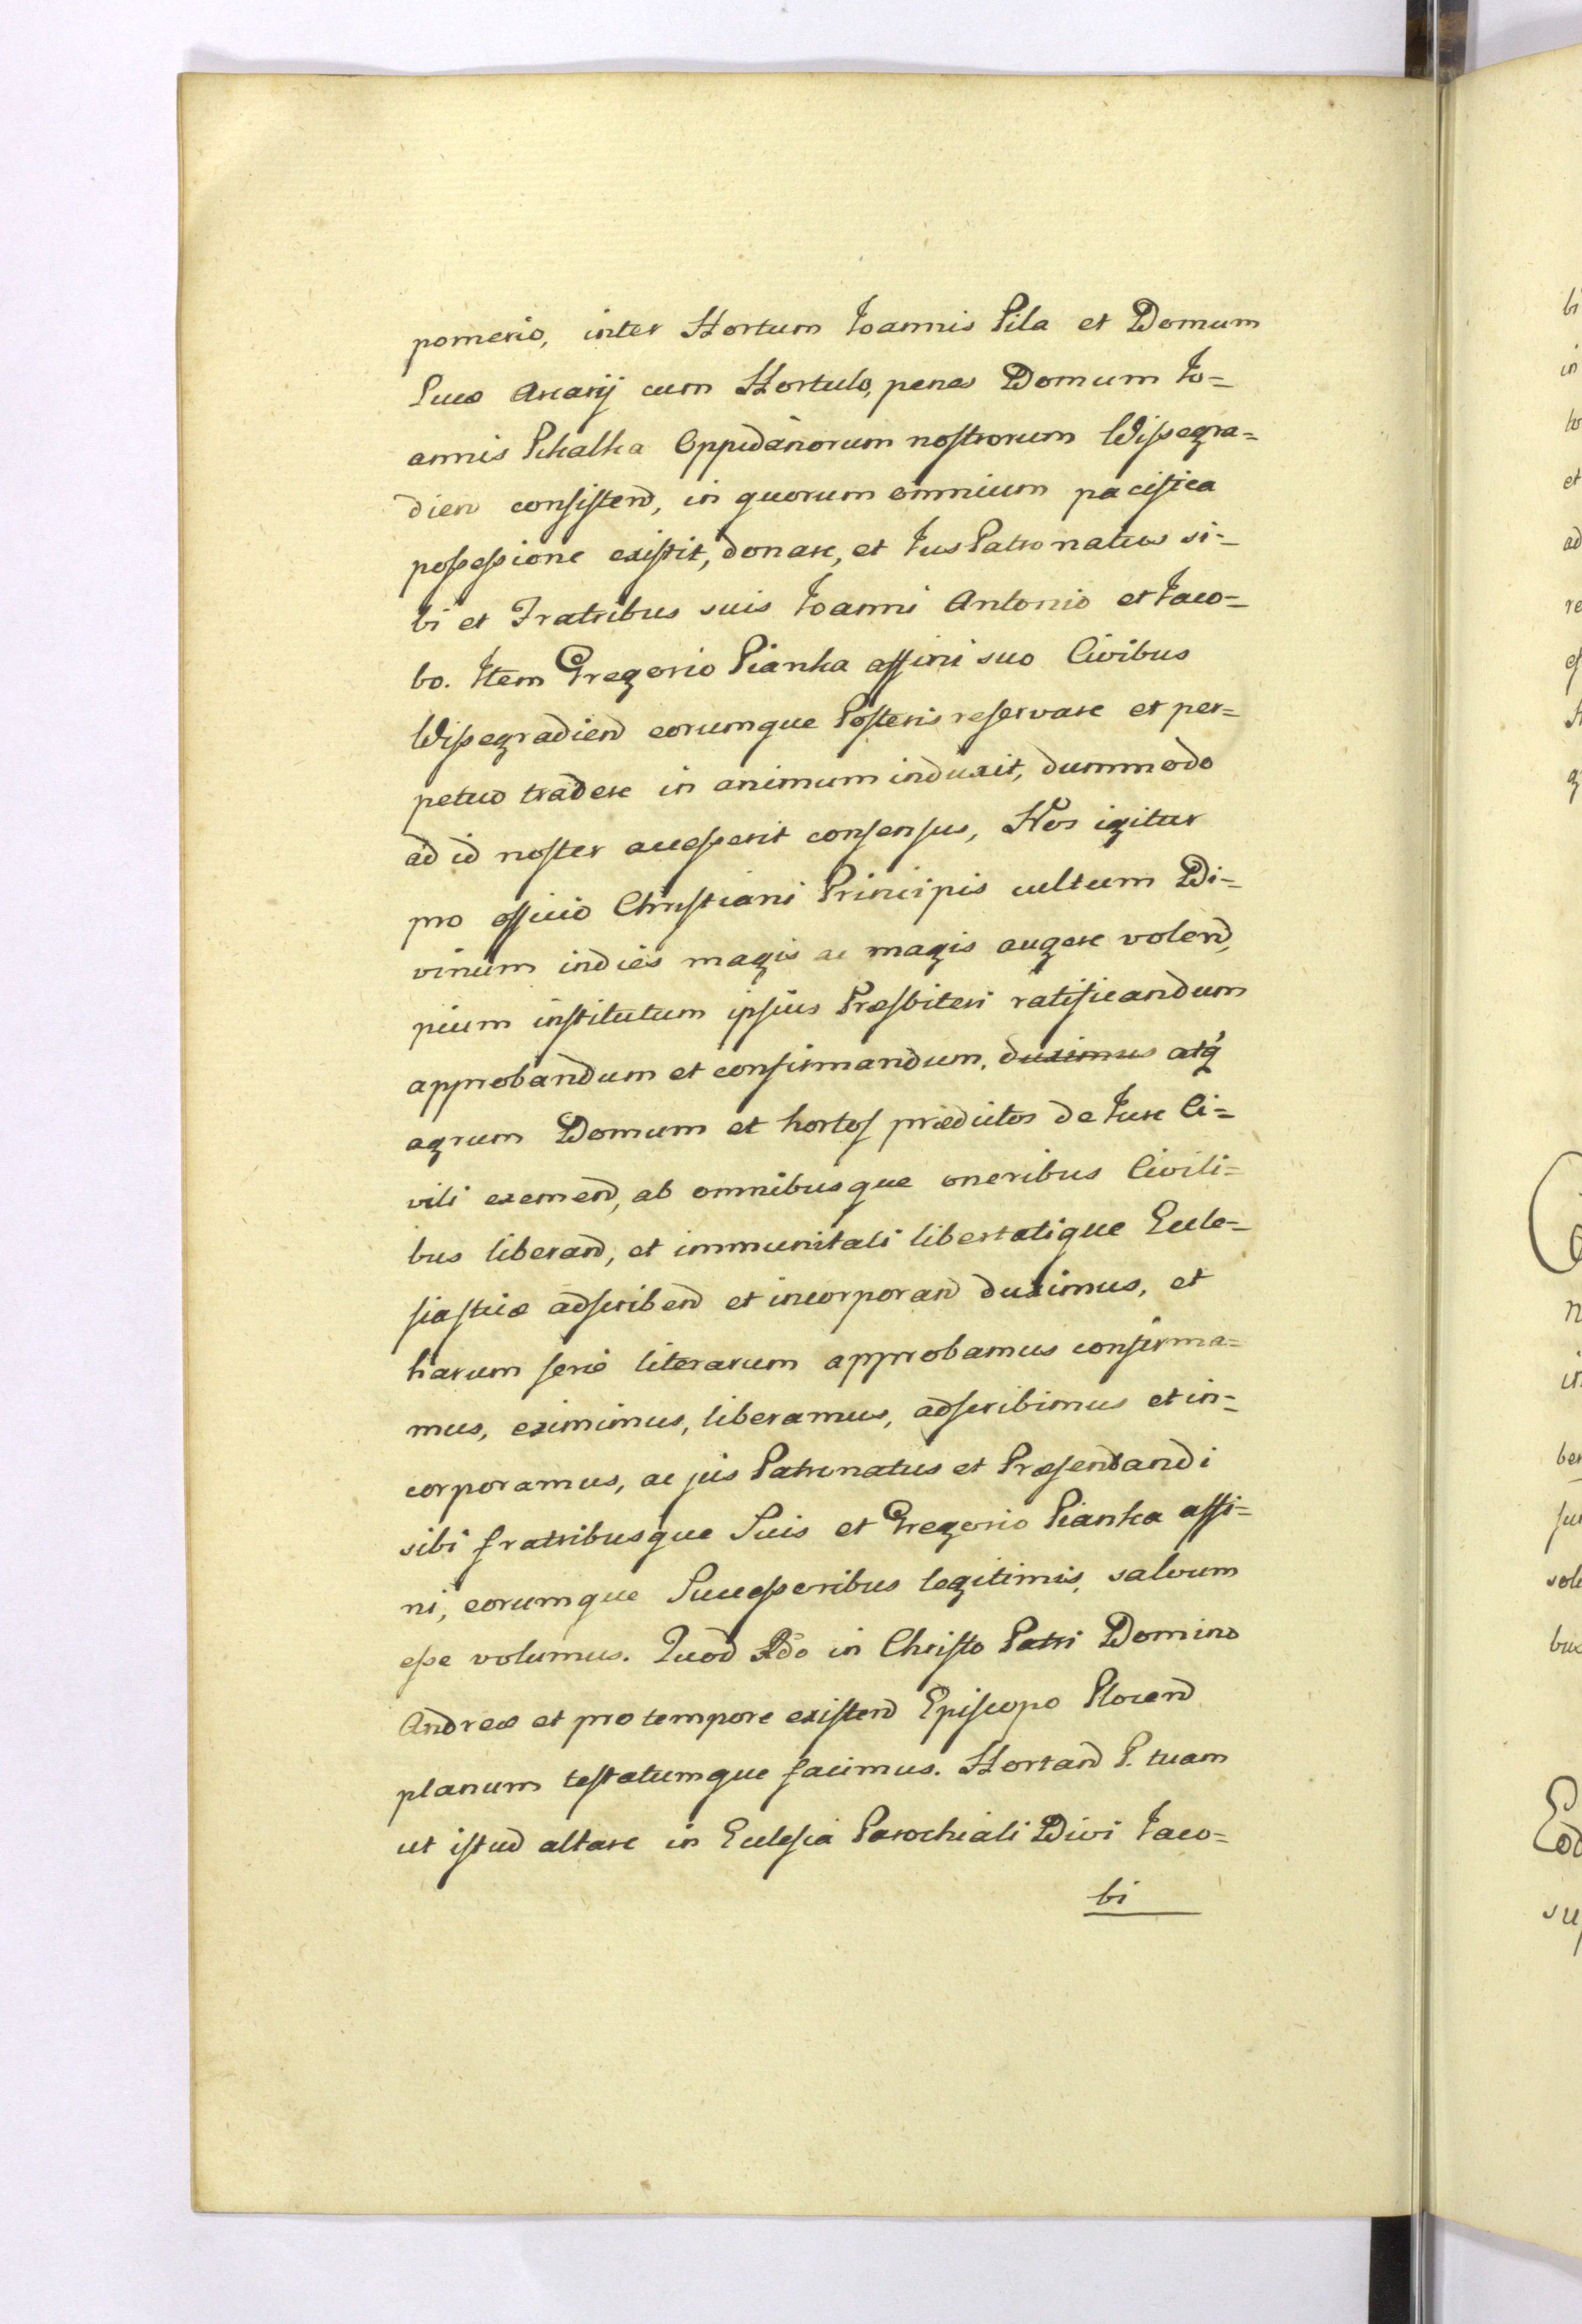 pomerio, inter Hortum Joannis Pila et Domum
Lucæ Aurarij cum Hortulo, penes Domum Jo=
annis Pchalka Oppidanorum nostrorum Wissegra=
dien consistend, in quorum omnium pacifica
possessione existit, donare, et Jus Patronatus si=
bi et Fratribus suis Joanni Antonio et Jaco=
bo. Item Gregorio Pianka affini suo Civibus
Wissegradiend eorumque Posteris reservare et per=
petuo tradere in animum induxit, dummodo
ad id noster accesserit consensus, Nos igitur
pro officio Christiani Principis cultum Di=
vinum indies magis ac magis augere volend,
pium institutum ipsius Præsbiteri ratificandum
approbandum et confirmandum, duximus atq
agrum Domum et hortos prædictos de Jure Ci=
vili exemend, ab omnibusque oneribus Civili=
bus liberand, et immunitati libertatique Eccle=
siasticæ adscribend et incorporand duximus, et
harum serie literarum approbamus confirma=
mus, eximimus, liberamus, adscribimus et in=
corporamus, ac jus Patronatus et Præsentandi
sibi fratribusque Suis et Gregorio Pianka affi=
ni, eorumque Successoribus legitimis, salvum
esse volumus. Quod Rdo in Christo Patri Domino
Andreæ et pro tempore existend Episcopo Plocend
planum testatumque facimus. Hortand P. tuam
ut istud altare in Ecclesia Parochiali Divi Jaco=
bi